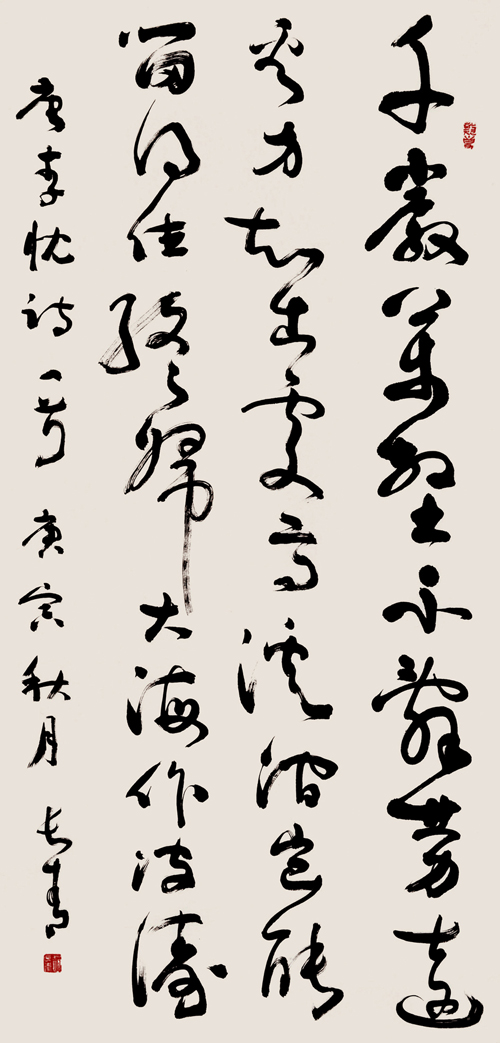 千巖萬壑不辭勞遠
看方知出處高溪澗豈能
留得住終歸大海作波濤
唐李忱詩一首 庚寅秋月 長青